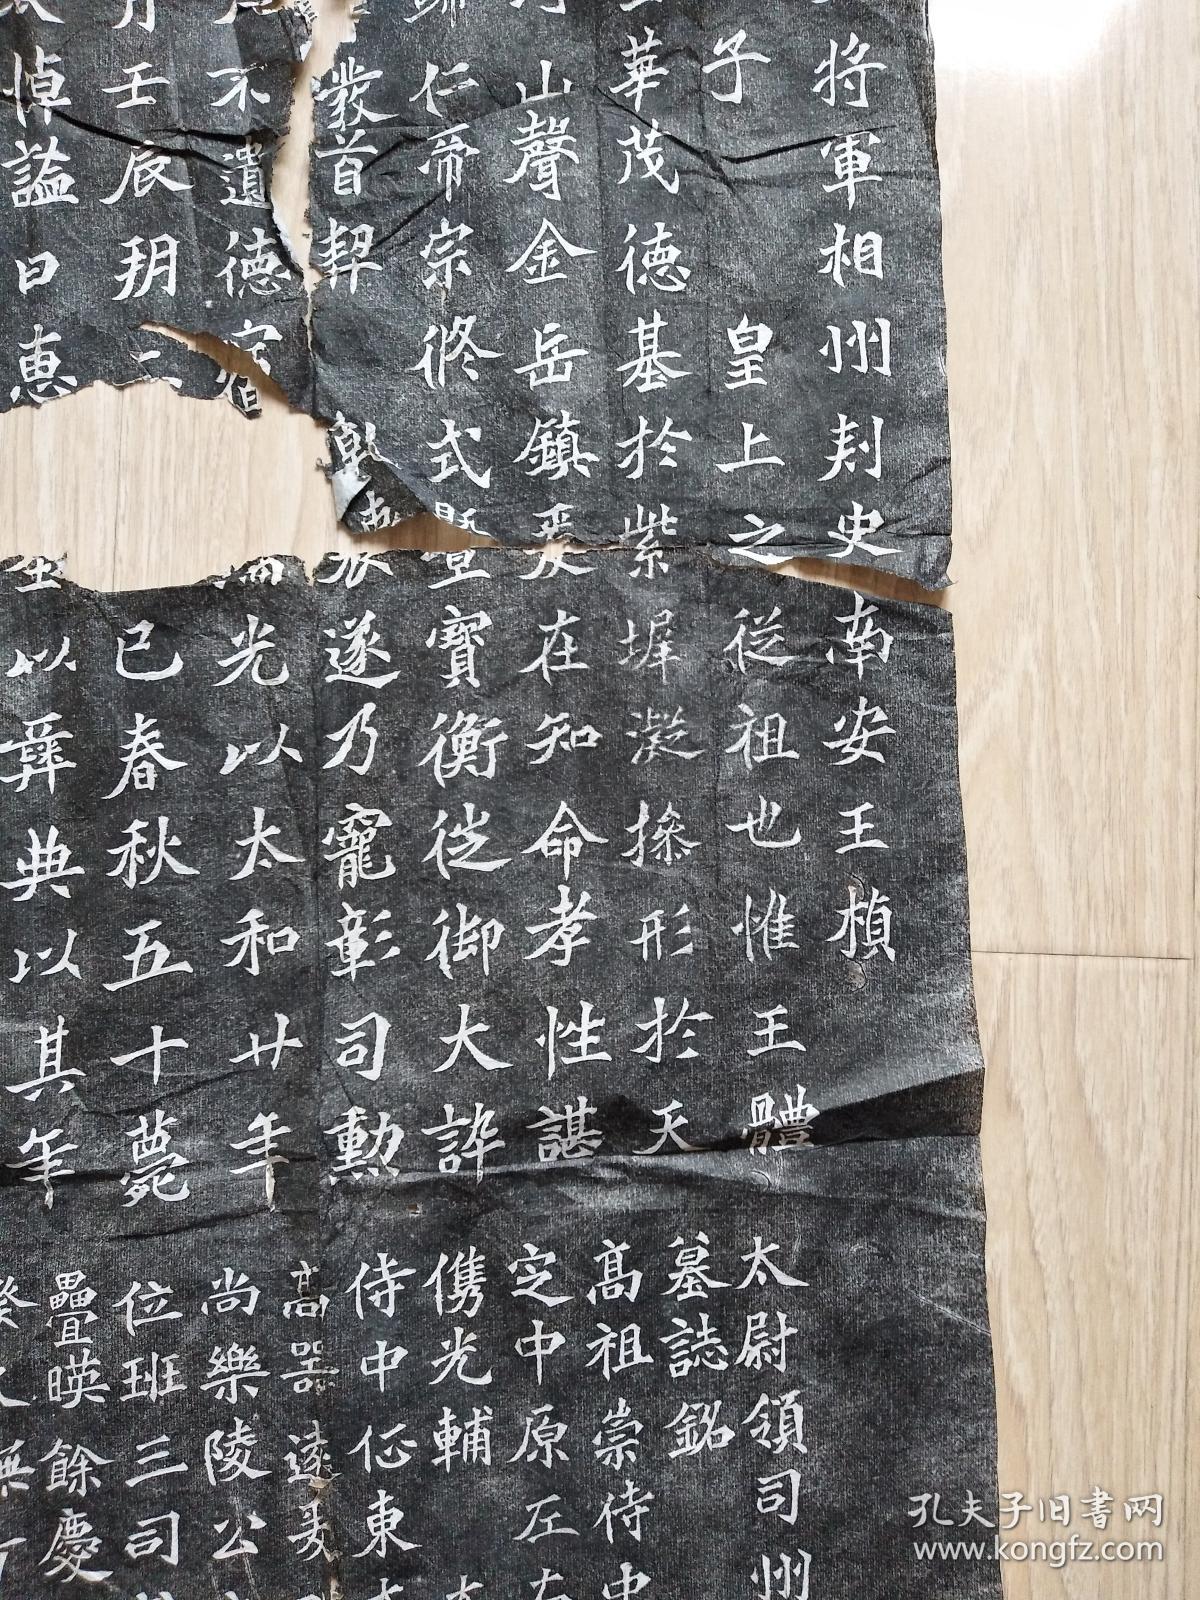 將軍相州刺史南安王楨
子 皇上之從祖也惟 王體
華茂德基於紫墀凝操形於天
山聲金岳鎮爰在知命孝性諶
仁帝宗終式暨寶衡徙御大訡
發首契乾遂乃寵彰司勳
不遺德宿光以太和廿年
月壬辰玥二已春秋五十薨
悼謚曰恵以彝典以其年
太尉領司州
墓誌銘
高祖崇侍中
定中原左右
儁光輔
侍中伾東
高器遠
尚樂陵公
位班三司
疊暎餘慶
孔夫子旧書网
www.kongfz.com